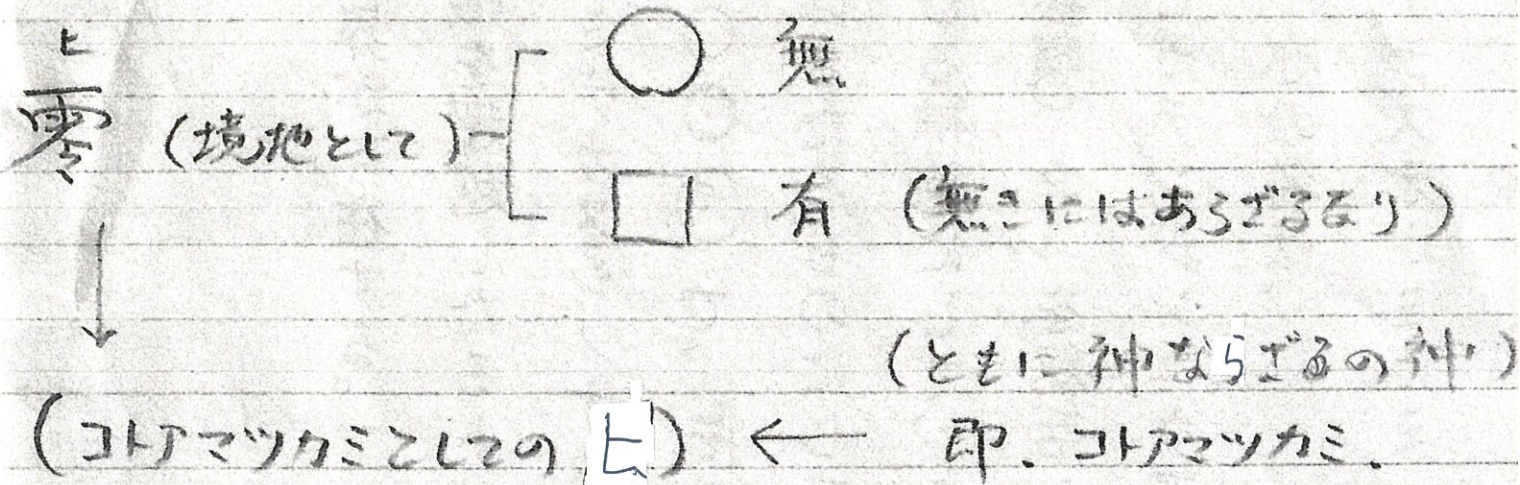 ヒ
零 (境地として)
○ 無
□ 有 (無きにはあらざるなり)
↓
(ともに神ならざるの神)
(コトアマツカミとしてのヒ) ← 即、コトアマツカミ.